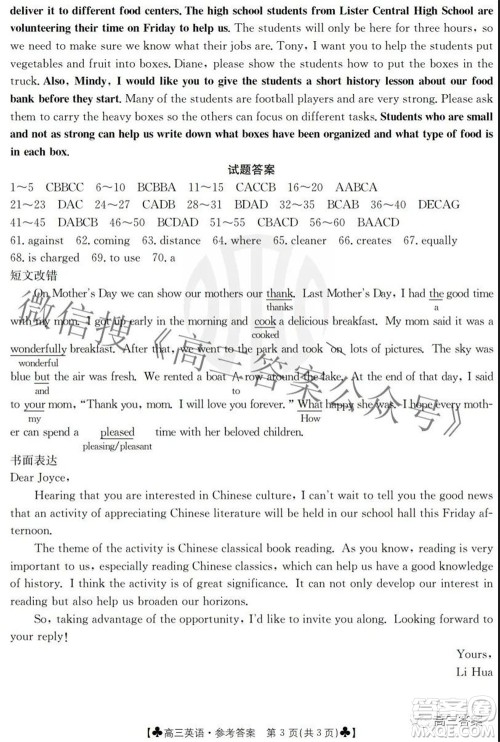 deliver it to different food centers. The high school students from Lister Central High School are
volunteering their time on Friday to help us. The students will only be here for three hours, so
we need to make sure we know what their jobs are. Tony, I want you to help the students put
vegetables and fruit into boxes. Diane, please show the students how to put the boxes in the
truck. Also, Mindy, I would like you to give the students a short history lesson about our food
bank before they start. Many of the students are football players and are very strong. Please ask
them to carry the heavy boxes so the others can focus on different tasks. Students who are small
and not as strong can help us write down what boxes have been organized and what type of food is
in each box.
试题答案
1～5 CBBCC 6～10 BCBBA 11～15 CACCB 16～20 AABCA
21～23 DAC 24～27 CADB 28～31 DBAC 32～35 BCAB 36～40 DECAG
41～45 DABCB 46～50 BCDAD 51～55 CBACD 56～60 BAACD
61. against 62. coming 63. distance 64. where 65. cleaner 66. creates 67. equally
68. is charged 69. to use 70. a
短文改错
On Mother's Day we can show our mothers our thank. Last Mother's Day, I had the good time
thanks a
with my mom. I got up early in the morning and cook a delicious breakfast. My mom said it was a
cooked
wonderfully breakfast. After that, we went to the park and took on lots of pictures. The sky was
wonderful
blue but the air was fresh. We rented a boat ∧ row around the lake. At the end of that day, I said
and to
to your mom, "Thank you, mom. I will love you forever." What happy she was! I hope every moth-
my How
er can spend a pleased time with her beloved children.
pleasing/pleasant
书面表达
Dear Joyce,
Hearing that you are interested in Chinese culture, I can't wait to tell you the good news
that an activity of appreciating Chinese literature will be held in our school hall this Friday af-
ternoon.
The theme of the activity is Chinese classical book reading. As you know, reading is very
important to us, especially reading Chinese classics, which can help us have a good knowledge
of history. I think the activity is of great significance. It can not only develop our interest in
reading but also help us broaden our horizons.
So, taking advantage of the opportunity, I'd like to invite you along. Looking forward to
your reply!
Yours,
Li Hua
【♣高三英语·参考答案 第 3 页(共 3 页)♣】
微信搜《高三答案公众号》
高三答案